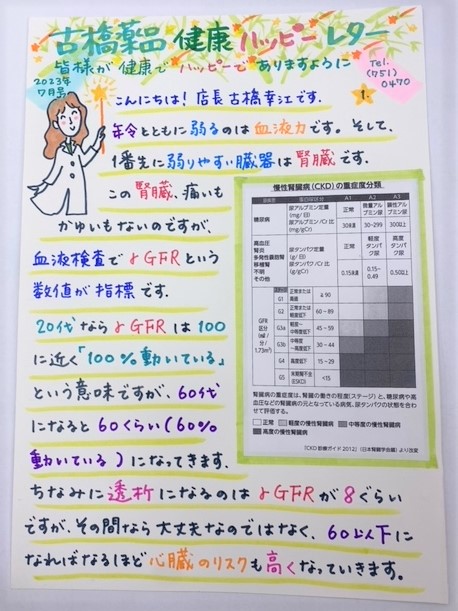 古橋薬品 健康 ハッピー レター
皆様が 健康で ハッピーで ありますように
Tel.
(751)
0470
2023年
7月号
1.
こんにちは! 店長 古橋幸江です.
年令とともに弱るのは 血液力です。そして、
1番先に弱りやすい臓器は 腎臓です.
この 腎臓、痛いも
かゆいもないのですが、
血液検査で γGFRという
数値が指標です.
20代なら γGFRは 100
に近く「100%動いている」
という意味ですが、60代
になると 60くらい(60%
動いている)になってきます.
ちなみに 透析になるのは γGFRが 8ぐらい
ですが、その間なら大丈夫なのではなく、60以下に
なればなるほど 心臓のリスクも 高くなっていきます.
慢性腎臓病(CKD)の重症度分類
A1 A2 A3
糖尿病
尿アルブミン定量
(mg/日)
尿アルブミン/Cr比
(mg/gCr)
正常
微量アルブミン尿
顕性アルブミン尿
30未満 30~299 300以上
高血圧
腎炎
多発性嚢胞腎
移植腎
不明
その他
尿タンパク定量
(g/日)
尿タンパク/Cr比
(g/gCr)
正常
軽度タンパク尿
高度タンパク尿
0.15未満 0.15~0.49 0.50以上
GFR
区分
(mL/分/1.73m²)
G1 正常または高値 ≧90
G2 正常または軽度低下 60~89
G3a 軽度~中等度低下 45~59
G3b 中等度~高度低下 30~44
G4 高度低下 15~29
G5 末期腎不全(ESKD) <15
腎臓病の重症度は、腎臓の働きの程度(ステージ)と、糖尿病や高
血圧などの腎臓病の元となっている病気、尿タンパクの状態を合わ
せて評価する。
正常 軽度の慢性腎臓病 中等度の慢性腎臓病
高度の慢性腎臓病
「CKD診療ガイド2012」(日本腎臓学会編)より改変